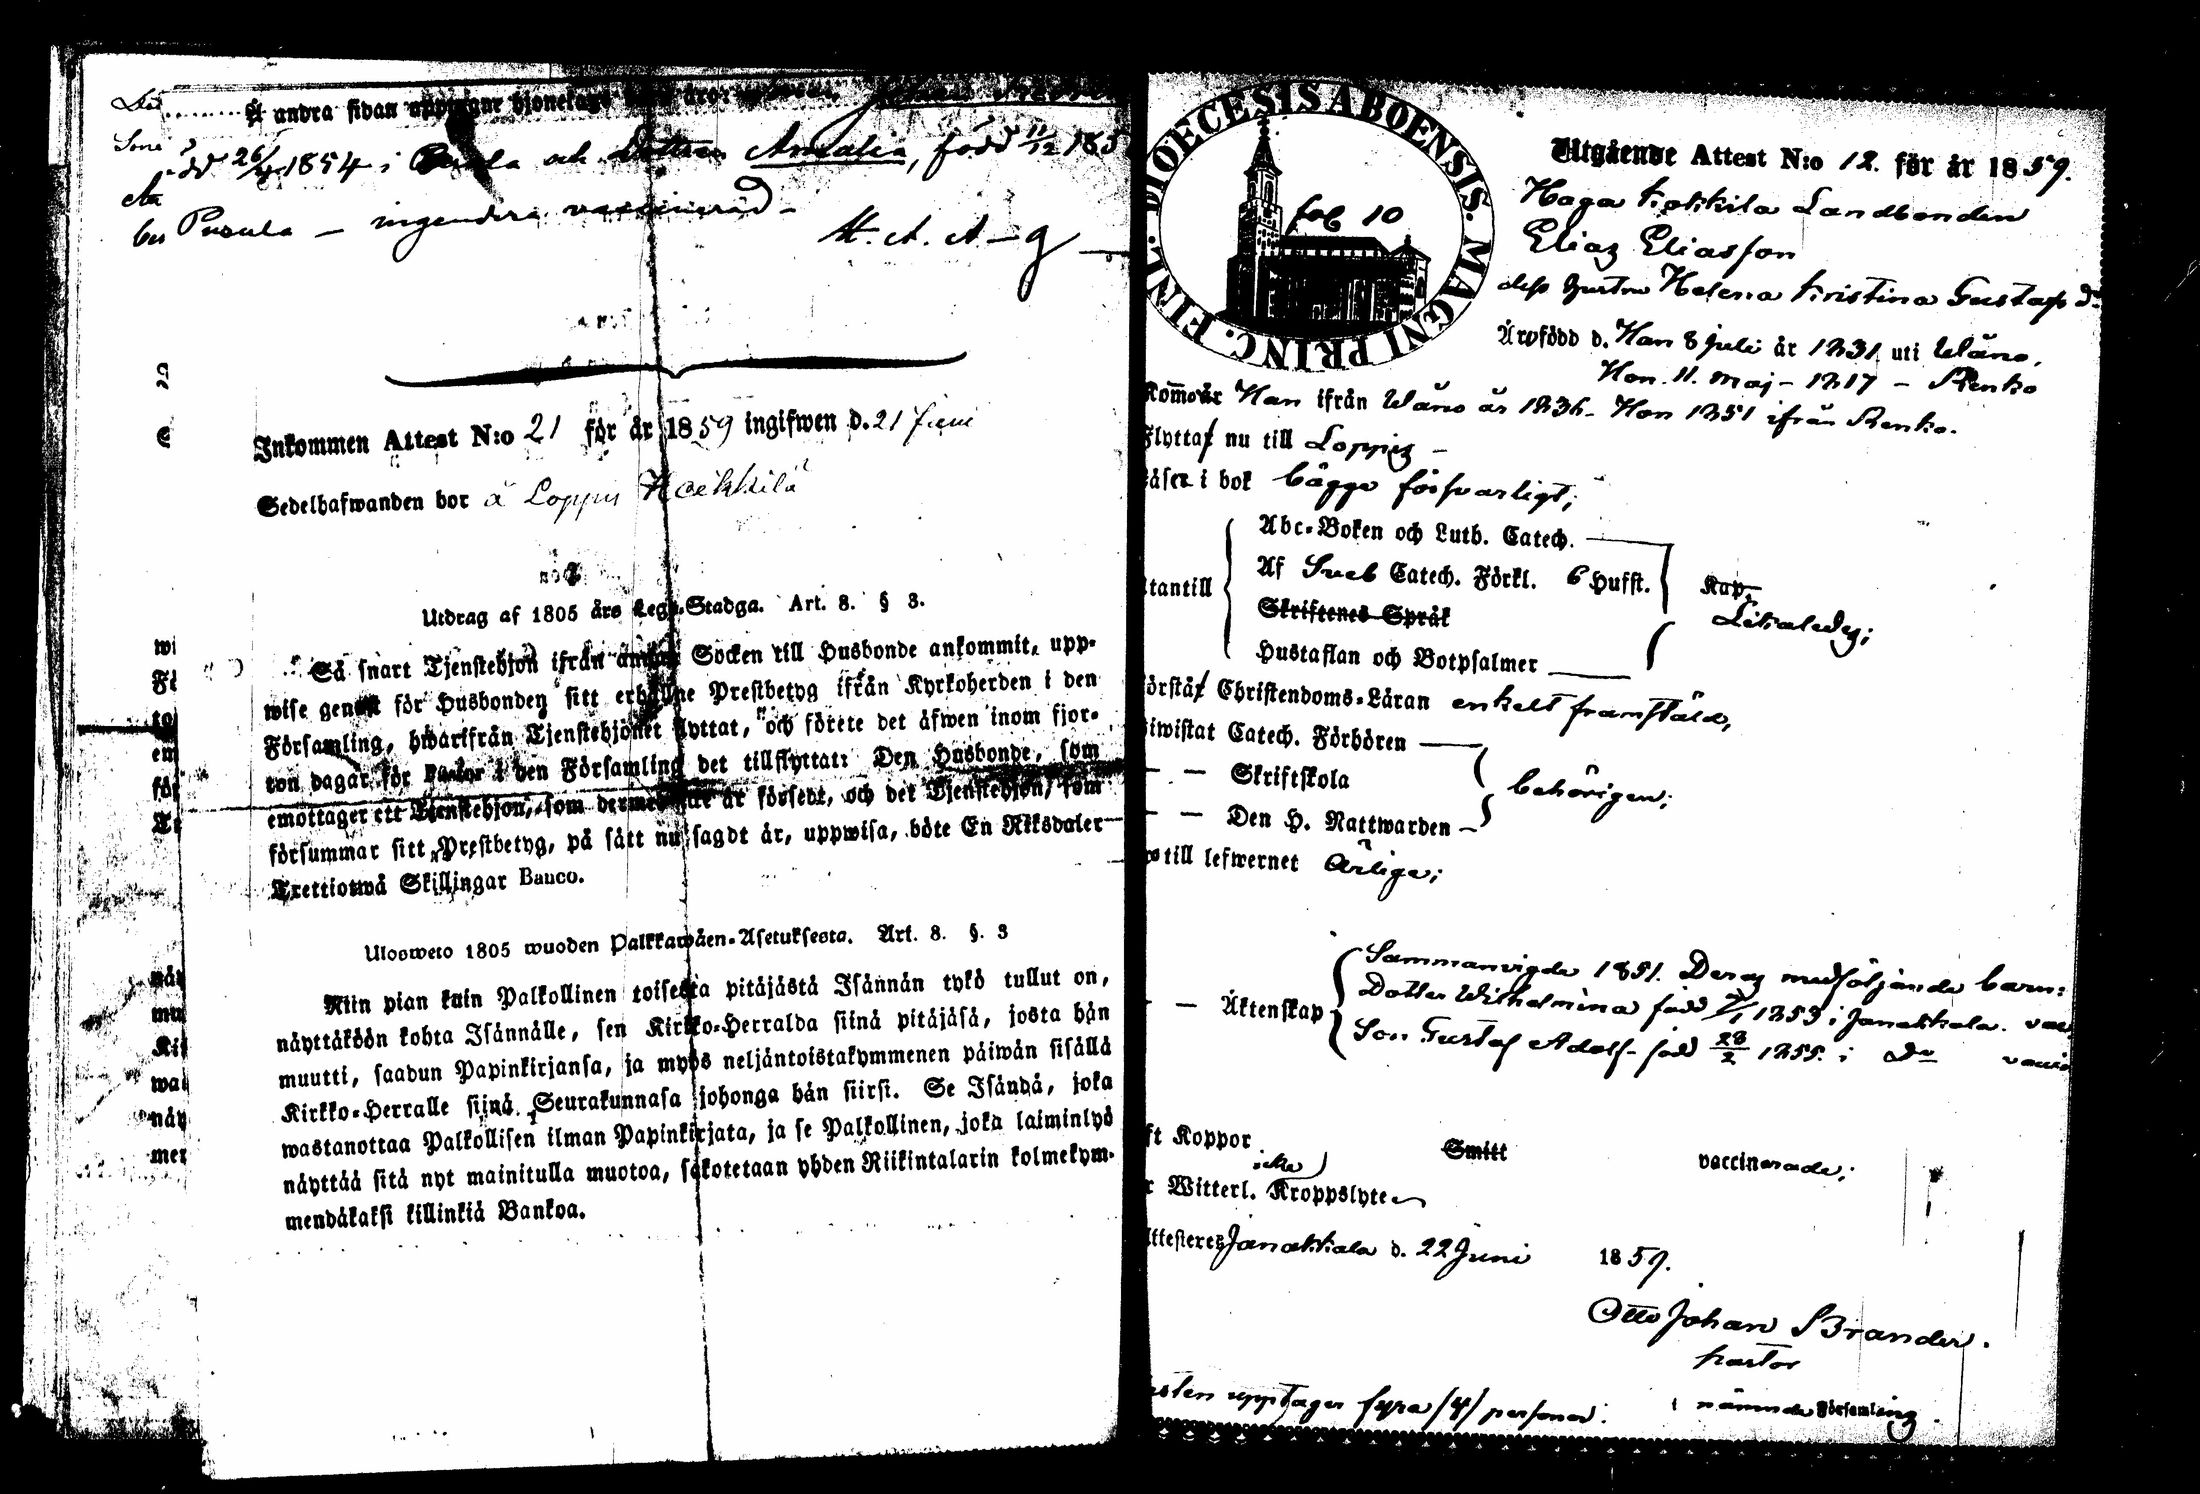 å andra sidan upptagne hjonelags
född 26/4 1854 i Pusula och Dottren Amalia, född 11/12 185
Pusula — ingendera vaccinerad –
Inkommen Attest N:o 21 för år 1859 ingifwen d. 21 Juni
Sedelhafwanden bor å Loppis Hæckkilä
Utdrag af 1805 års Lego-Stadga. Art. 8. § 3.
Så snart Tjenstehjon ifrån annan Socken till Husbonde ankommit, upp-
wise genast för Husbonden sitt erhållne Prestbetyg ifrån Kyrkoherden i den
Församling, hwarifrån Tjenstehjonet flyttat, och förete det äfwen inom fjor-
ton dagar för Pastor i den Församling det tillflyttat: Den Husbonde, som
emottager ett Tjenstehjon, som dermed icke är försedt, och det Tjenstehjon, som
försummar sitt Prestbetyg, på sätt nu sagdt är, uppwisa, böte En Riksdaler
Trettiotwå Skillingar Banco.
Ulosweto 1805 wuoden Palkkawäen-Asetuksesta. Art. 8. §. 3
Niin pian kuin Palkollinen toisesta pitäjästä Isännän tykö tullut on,
näyttäköön kohta Isännälle, sen Kirkko-Herralda siinä pitäjäsä, josta hän
muutti, saadun Papinkirjansa, ja myös neljäntoistakymmenen päiwän sisällä
Kirkko-Herralle siinä Seurakunnasa johonga hän siirsi. Se Isändä, joka
wastanottaa Palkollisen ilman Papinkirjata, ja se Palkollinen, joka laiminlyö
näyttää sitä nyt mainitulla muotoa, sakotetaan yhden Riikintalarin kolmekym-
mendäkaksi killinkiä Bankoa.
DIOECESIS ABOENSIS. MAGNI PRINC. FINL.
fol 10
Utgående Attest N:o 12. för år 1859.
Haga Kokkila Landbonden
Elias Eliasson
dess hustru Helena Kristina Gustafsdr
Äro född d. Han 8 Juli år 1831 uti Wåno,
Hon 11. Maj – 1817 – Renko
Komne är Han ifrån Wåno år 1836 – Hon 1851 ifrån Renko.
Flytta nu till Loppis –
Läser i bok bägge försvarligt;
Utantill
Abc-Boken och Luth. Catech.
Af Sveb Catech. Förkl. 6 Hufst. Kap.
Skriftenes Språk
Likaledes;
Hustaflan och Botpsalmer
Förstå Christendoms-Läran enkelt framstäld,
Biwistat Catech. Förhören
— — Skriftskola
behörigen;
— — Den H. Nattwarden
till lefwernet ärlige;
— — Äktenskap
Sammanvigde 1851. Deras medföljande barn:
Dotter Wilhelmina född 1853 i Janakkala.
Son Gustaf Adolf född 28/2 1855. i Do
Haft Koppor Smitt vaccinerade;
icke
Witterl. Kroppslyte
Attesteres Janakkala d. 22 Juni 1859.
Otto Johan Brander.
pastor
upptager fyra /4/ personer. i nämnde Församling.